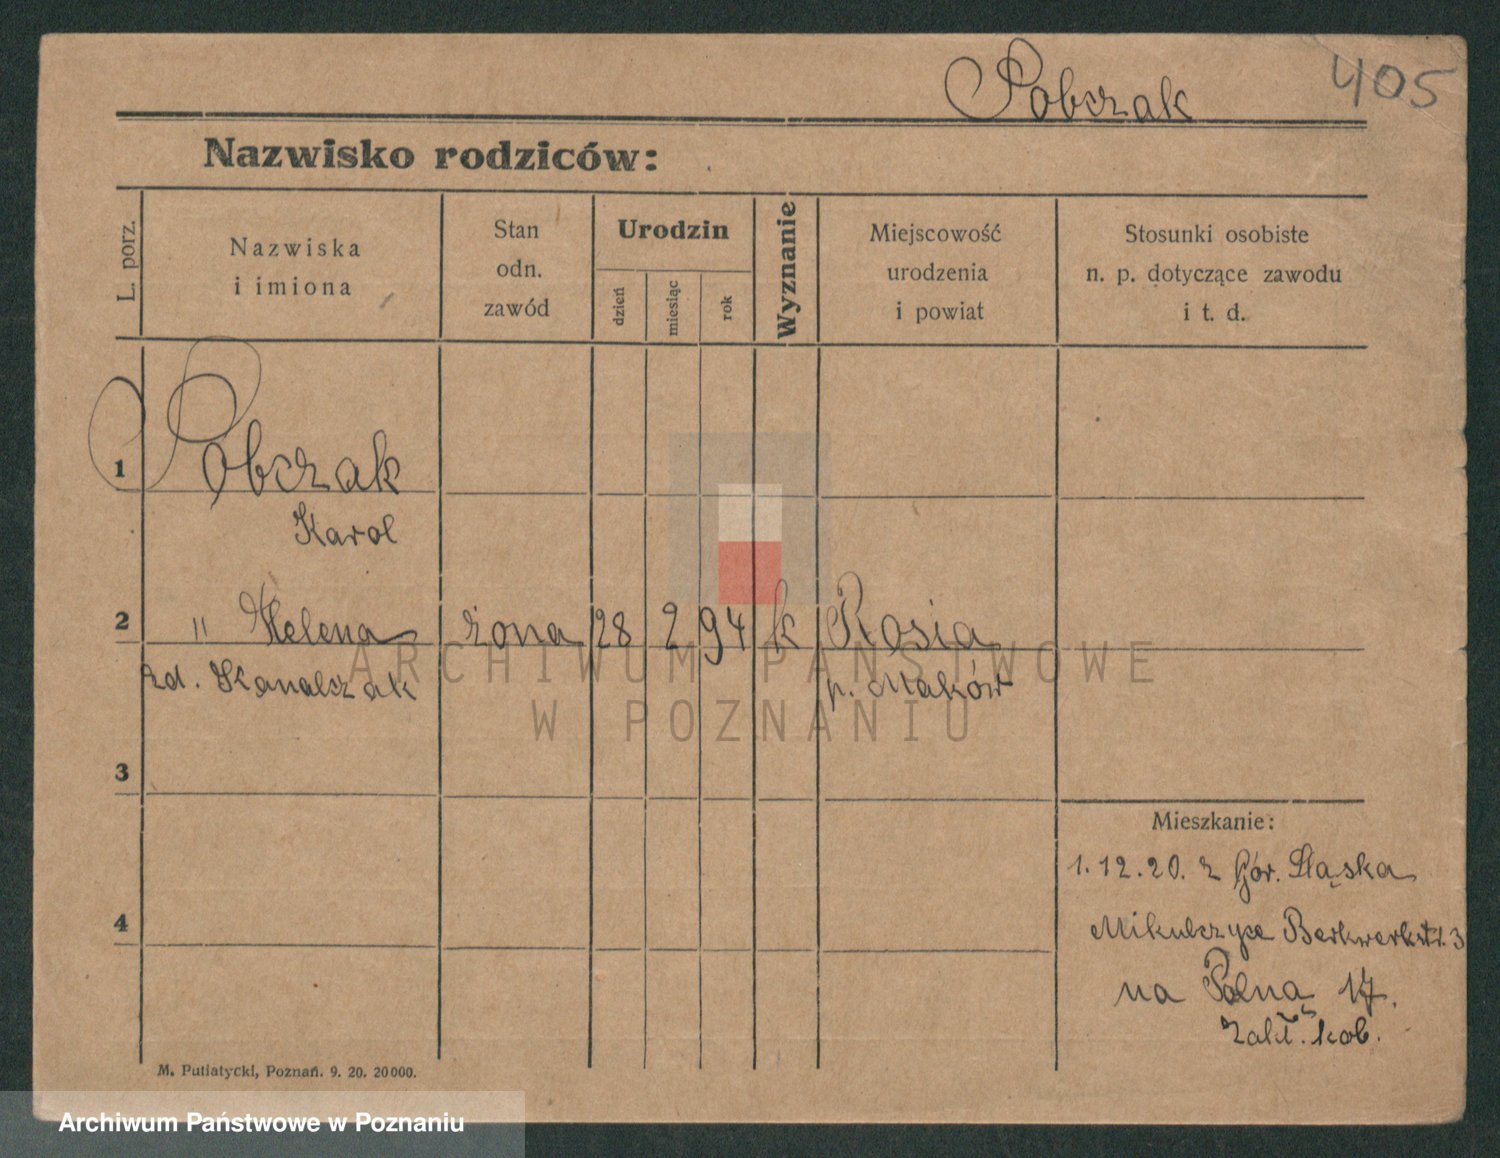 Pobczak
405
Nazwisko rodziców:
L. porz.
Nazwiska
i imiona
Stan
odn.
zawód
Urodzin
dzień
miesiąc
rok
Wyznanie
Miejscowość
urodzenia
i powiat
Stosunki osobiste
n. p. dotyczące zawodu
i t. d.
1 Pobczak
Karol
2 " Helena żona 28 2 94 k Rosia
zd. Kanalczak p. Maków
3
Mieszkanie:
1.12.20. z Gór. Śląska
4
Mikulczyce Berkwerkstr. 3
na Polną 17.
zakł. kob.
M. Putiatycki, Poznań. 9. 20. 20000.
ARCHIWUM PAŃSTWOWE
W POZNANIU
Archiwum Państwowe w Poznaniu